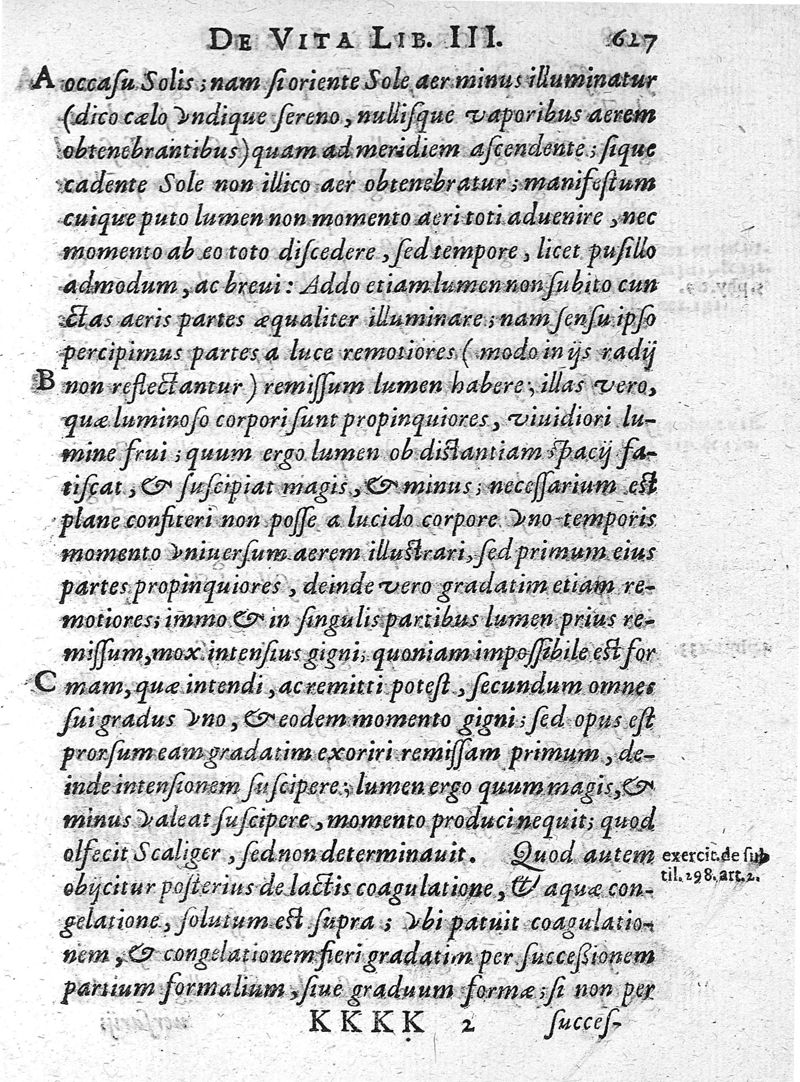 DE VITA LIB. III. 627
A occasu Solis; nam si oriente Sole aer minus illuminatur
(dico cælo vndique sereno, nullisque vaporibus aerem
obtenebrantibus) quam ad meridiem ascendente; sique
cadente Sole non illico aer obtenebratur; manifestum
cuique puto lumen non momento aeri toti aduenire, nec
momento ab eo toto discedere, sed tempore, licet pusillo
admodum, ac breui: Addo etiam lumen non subito cun
ctas aeris partes æqualiter illuminare; nam sensu ipso
percipimus partes a luce remotiores (modo in ijs radij
B non reflectantur) remissum lumen habere; illas vero,
quæ luminoso corpori sunt propinquiores, viuidiori lu-
mine frui; quum ergo lumen ob distantiam spacij fa-
tiscat, & suscipiat magis, & minus; necessarium est
plane confiteri non posse a lucido corpore vno temporis
momento vniuersum aerem illustrari, sed primum eius
partes propinquiores, deinde vero gradatim etiam re-
motiores; immo & in singulis partibus lumen prius re-
missum, mox intensius gigni; quoniam impossibile est for
C mam, quæ intendi, ac remitti potest, secundum omnes
sui gradus vno, & eodem momento gigni; sed opus est
prorsum eam gradatim exoriri remissam primum, de-
inde intensionem suscipere; lumen ergo quum magis, &
minus valeat suscipere, momento produci nequit; quod
olfecit Scaliger, sed non determinauit. Quod autem
exercit. de sub
til. 298. art. 2.
obijcitur posterius de lactis coagulatione, & aquæ con-
gelatione, solutum est supra; vbi patuit coagulatio-
nem, & congelationem fieri gradatim per successionem
partium formalium, siue graduum formæ; si non per
KKKK 2 succes-